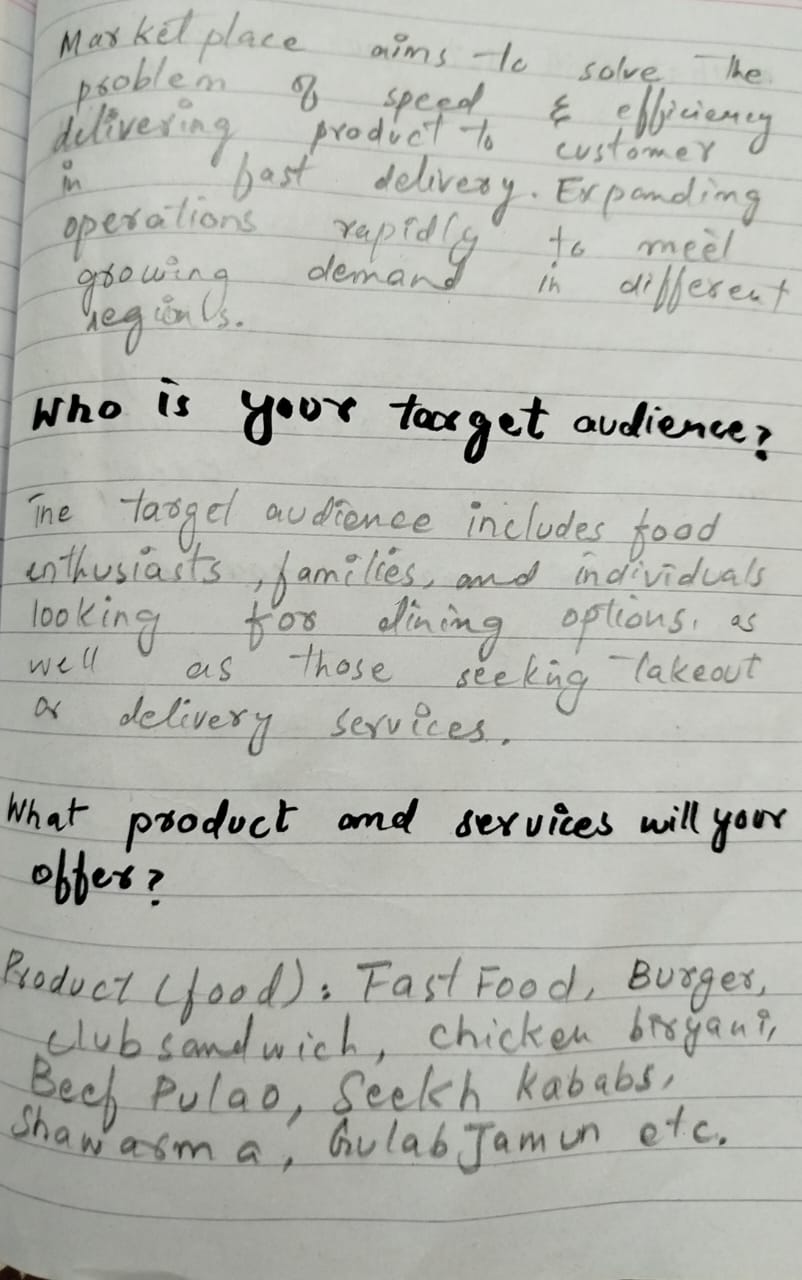 Marketplace aims to solve the
problem of speed & efficiency
delivering product to customer
in fast delivery. Expanding
operations rapidly to meet
growing demand in different
regions.
Who is your target audience?
The target audience includes food
enthusiasts, families, and individuals
looking for dining options, as
well as those seeking takeout
or delivery services.
What product and services will your
offer?
Product (food): Fast Food, Burger,
club sandwich, chicken biryani,
Beef Pulao, Seekh Kababs,
Shawarma, Gulab Jamun etc.